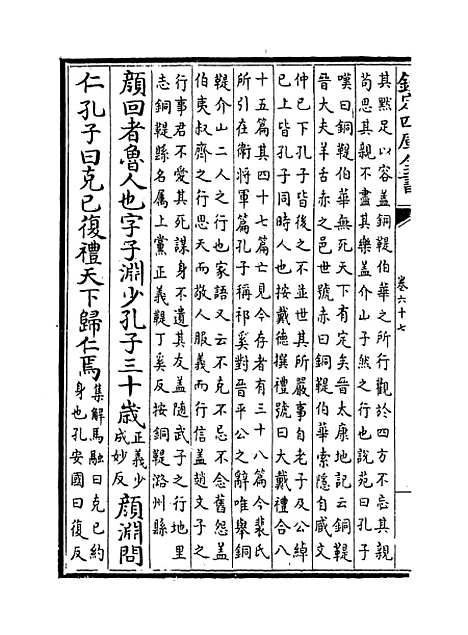 欽定四庫全書
卷六十七
其黙足以容盖銅鞮伯華之所行觀於四方不忘其親
苟思其親不盡其樂盖介山子然之行也説苑曰孔子
嘆曰銅鞮伯華無死天下有定矣晉太康地記云銅鞮
晉大夫羊舌赤之邑世號赤曰銅鞮伯華索隱自臧文
仲已下孔子皆後之不並世其所嚴事自老子及公綽
已上皆孔子同時人也按戴德撰禮號曰大戴禮合八
十五篇其四十七篇亡見今存者有三十八篇今裴氏
所引在衛將軍篇孔子稱祁奚對晉平公之辭唯舉銅
鞮介山二人之行也家語又云不克不忌不念舊怨盖
伯夷叔齊之行思天而敬人服義而行信盖趙文子之
行事君不愛其死謀身不遺其友盖随武子之行地里
志銅鞮縣名屬上黨正義鞮丁奚反按銅鞮潞州縣
顔回者魯人也字子淵少孔子三十歳正義少成妙反顔淵問
仁孔子曰克已復禮天下歸仁焉集解馬融曰克已約身也孔安國曰復反